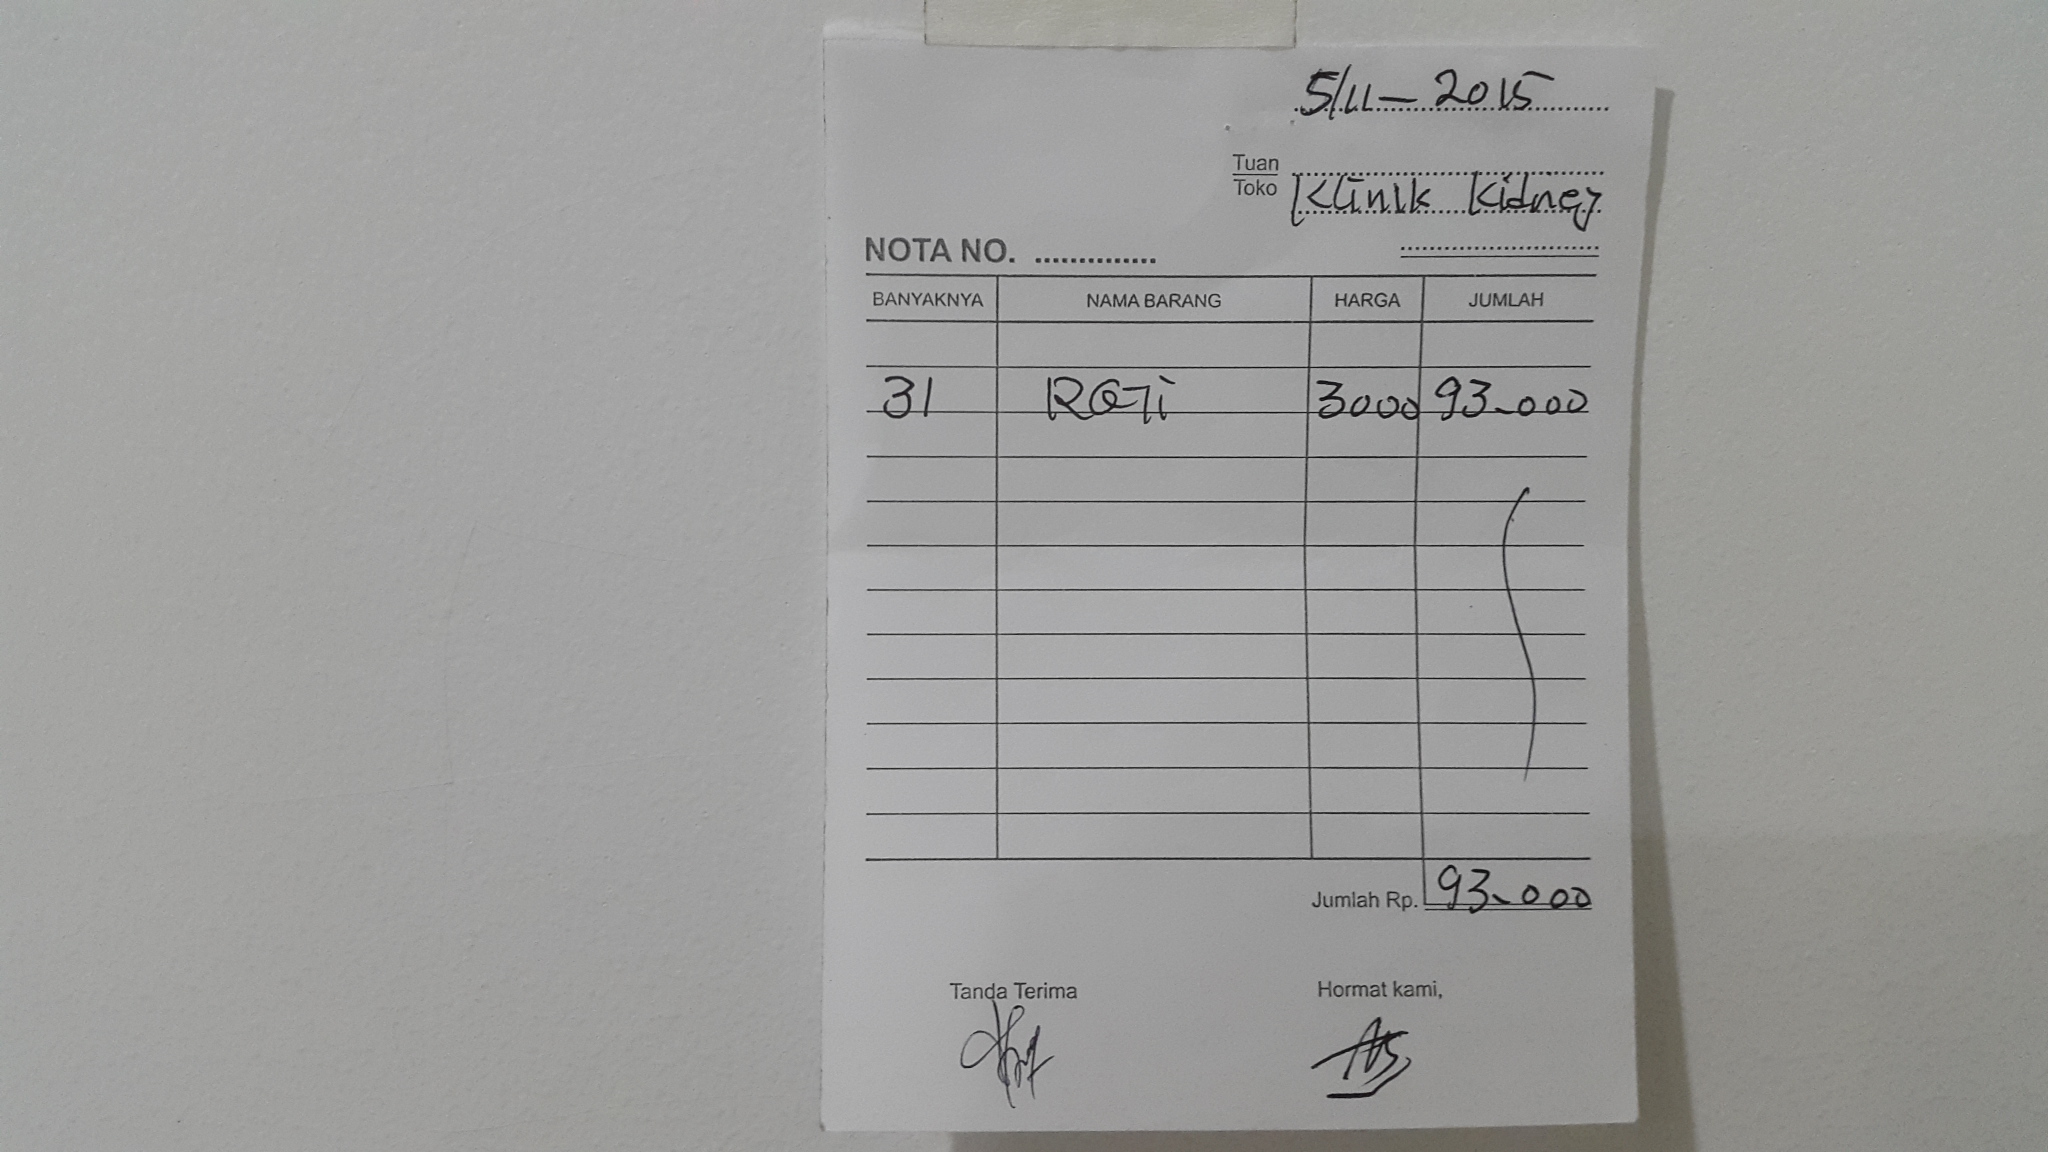 5/11-2015
Tuan
Toko Klinik Kidney
NOTA NO. ..............
BANYAKNYA NAMA BARANG HARGA JUMLAH
31 ROTi 3000 93.000
Jumlah Rp. 93.000
Tanda Terima Hormat kami,